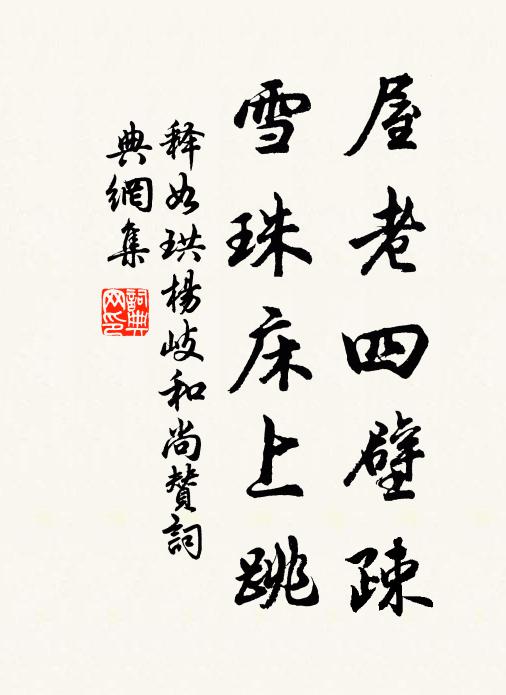 屋老四壁疎
雪珠床上跳
释如珙楊岐和尚贊詞
典網集
詞典网印